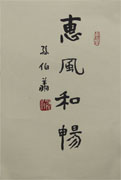 惠風和暢
孫伯翔